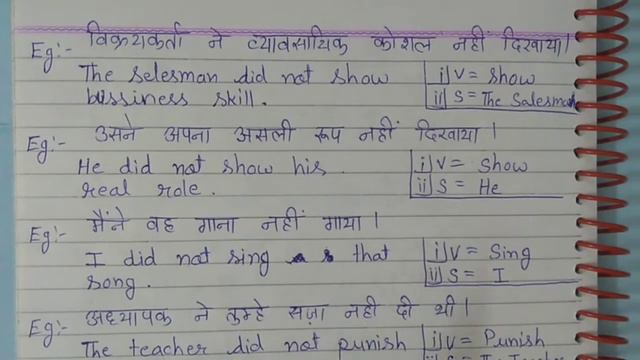 Eg:- विक्रयकर्ता ने व्यावसायिक कोशल नहीं दिखाया।
The selesman did not show i) V = show
bissiness skill. ii) S = The Salesman
Eg:- उसने अपना असली रूप नहीं दिखाया।
He did not show his i) V = Show
real role. ii) S = He
Eg:- मैंने वह गाना नहीं गाया।
I did not sing that i) V = Sing
song. ii) S = I
Eg:- अध्यापक ने तुम्हे सज़ा नही दी थी।
The teacher did not punish i) V = Punish